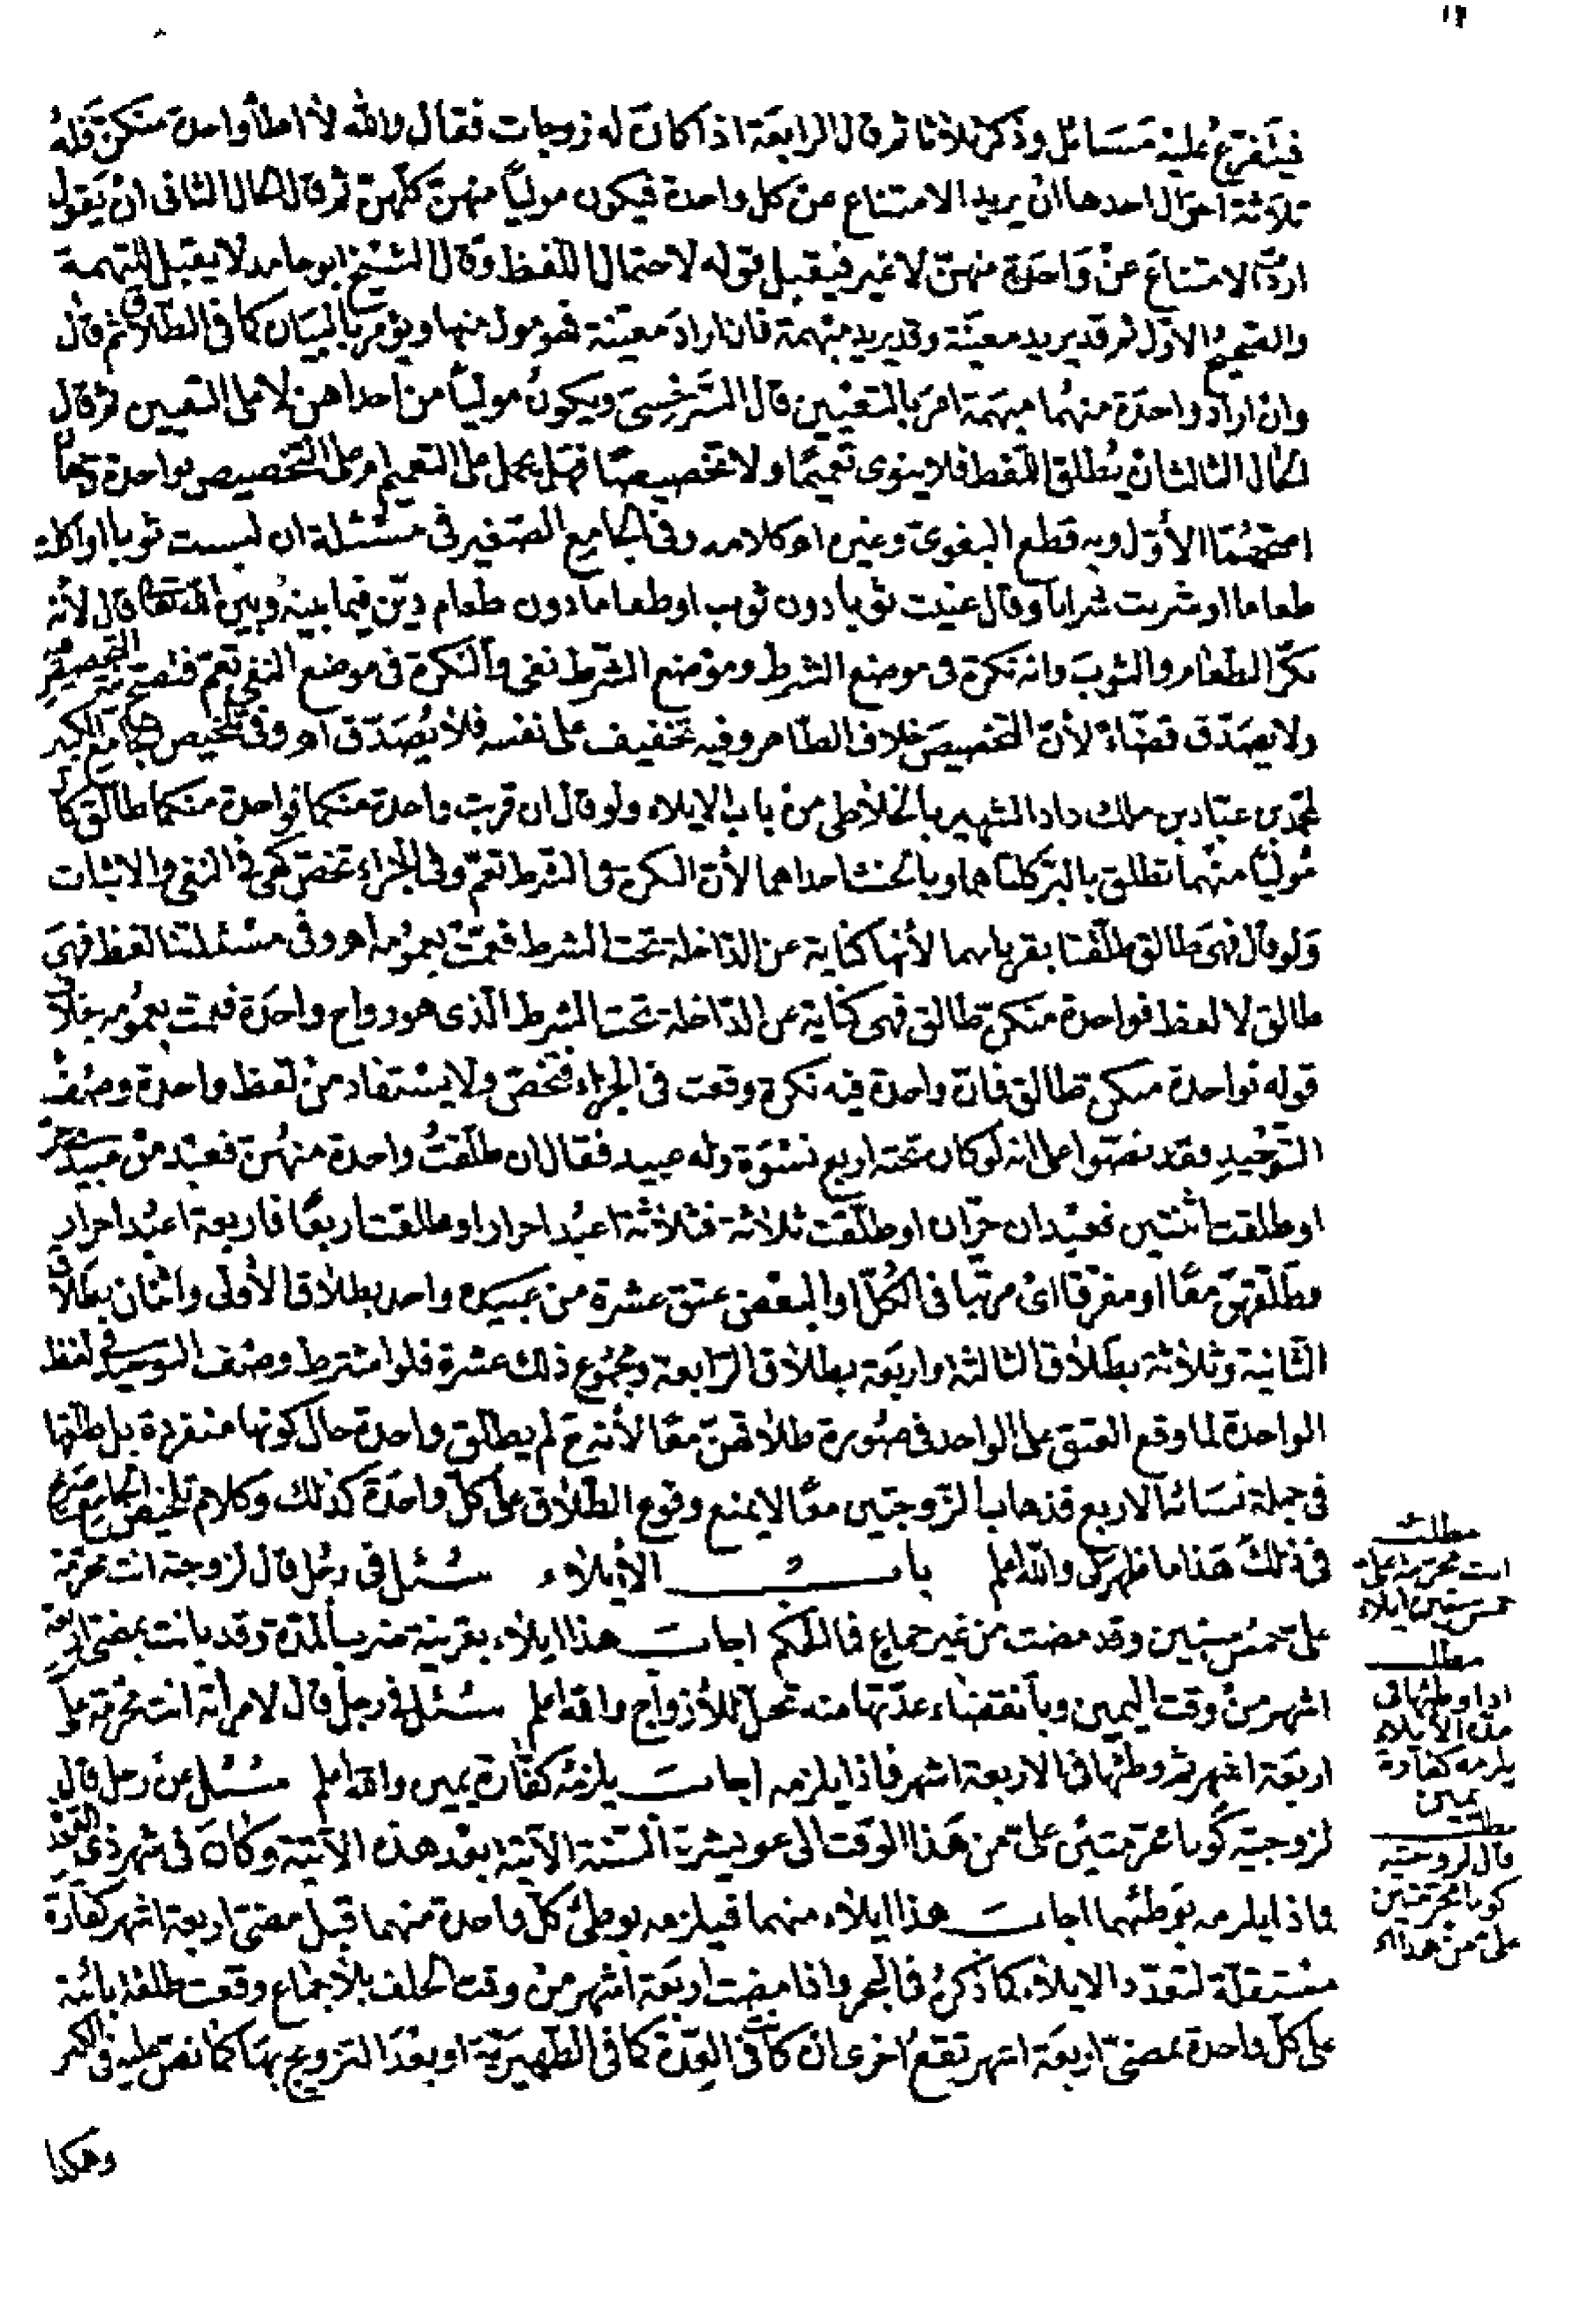 فيتفرع عليه مسائل وذكر ثلاثا ثم قال الرابعة اذا كان له زوجات فقال والله لا اطأ واحدة منكن فله
ثلاثة احوال احدها ان يريد الامتناع عن كل واحدة فيكون موليا منهن كلهن ثم قال الحال الثاني ان يقول
اردت الامتناع عن واحدة منهن لا غير فيقبل قوله لاحتمال اللفظ وقال الشيخ ابو حامد لا يقبل للتهمة
والصحيح الاول ثم قد يريد معينة وقد يريد مبهمة فان اراد معينة فهو مول منها ويؤمر بالبيان كما في الطلاق ثم قال
وان اراد واحدة منهما مبهمة امر بالتعيين قال السرخسي ويكون موليا من احداهن لا على التعيين ثم قال
الحال الثالث ان يطلق اللفظ فلا ينوي تعميما ولا تخصيصا فهل يحمل على التعميم ام على التخصيص بواحدة وجهان
اصحهما الاول وبه قطع البغوي وغيره اه كلامه وفي الجامع الصغير في مسئلة ان لبست ثوبا او اكلت
طعاما او شربت شرابا وقال عنيت ثوبا دون ثوب او طعاما دون طعام دين فيما بينه وبين الله تعالى قال لأنه
نكر الطعام والثوب وانه نكرة في موضع الشرط وموضع الشرط نفي والنكرة في موضع النفي تعم فتصح نية التخصيص
ولا يصدق قضاء لأن التخصيص خلاف الظاهر وفيه تخفيف على نفسه فلا يصدق اه وفي تلخيص الجامع الكبير
لمحمد بن عباد بن ملك داد الشهير بالخلاطي من باب الايلاء ولو قال ان قربت واحدة منكما فواحدة منكما طالق كان
موليا منهما تطلق بالبر كلتاهما وبالحنث احداهما لأن النكرة في الشرط تعم وفي الجزاء تخص كهي في النفي والاثبات
ولو قال فهي طالق طلقتا بقربانهما لأنها كناية عن الداخلة تحت الشرط فعمت بعمومه اه وفي مسئلتنا لفظ فهي
طالق لا لفظ فواحدة منكن طالق فهي كناية عن الداخلة تحت الشرط الذي هو رواح واحدة فعمت بعمومه بخلاف
قوله فواحدة منكن طالق فان واحدة فيه نكرة وقعت في الجزاء فتخص ولا يستفاد من لفظ واحدة وصف
التوحيد فقد نصوا على انه لو كان تحته اربع نسوة وله عبيد فقال ان طلقت واحدة منهن فعبد من عبيدي حر
او طلقت اثنتين فعبدان حران او طلقت ثلاثة فثلاثة اعبد احرار او طلقت اربعا فاربعة اعبد احرار
فطلقهن معا او مفرقا اي مرتبا في الكل او البعض عتق عشرة من عبيده واحد بطلاق الأولى واثنان بطلاق
الثانية وثلاثة بطلاق الثالثة واربعة بطلاق الرابعة ومجموع ذلك عشرة فلو اشترط وصف التوحيد في لفظ
الواحدة لما وقع العتق على الواحد في صورة طلاقهن معا لأنه ح لم يطلق واحدة حال كونها منفردة بل طلقها
في جملة نسائه الاربع فذهاب الزوجتين معا لا يمنع وقوع الطلاق على كل واحدة كذلك وكلام تلخيص الجامع صريح
في ذلك هذا ما ظهر لي والله اعلم باب الايلاء سئل في رجل قال لزوجة انت محرمة
على خمس سنين وقد مضت من غير جماع فما الحكم اجاب هذا ايلاء بقرينة ضرب المدة وقد بانت بمضي اربعة
اشهر من وقت اليمين وبانقضاء عدتها منه تحل للأزواج والله اعلم سئل في رجل قال لامرأته انت محرمة علي
اربعة اشهر ثم وطئها في الاربعة اشهر فماذا يلزمه اجاب يلزمه كفارة يمين والله اعلم سئل عن رجل قال
لزوجتيه كونا محرمتين علي من هذا الوقت الى عويشر السنة الآتية بعد هذه الآتية وكان في شهر ذي القعدة
فماذا يلزمه بوطئهما اجاب هذا ايلاء منهما فيلزمه بوطئ كل واحدة منهما قبل مضي اربعة اشهر كفارة
مستقلة لتعدد الايلاء كما ذكره في البحر واذا مضت اربعة اشهر من وقت الحلف بلا جماع وقعت طلقة بائنة
على كل واحدة بمضي اربعة اشهر تقع اخرى ان كان في العدة كما في الظهيرية او بعد التزويج بها كما نص عليه في البحر
وهكذا
مطلب
انت محرمة علي
خمس سنين ايلاء
مطلب
اذا وطئها في
مدة الايلاء
يلزمه كفارة
يمين
مطلب
قال لزوجتيه
كونا محرمتين
علي من هذا الخ